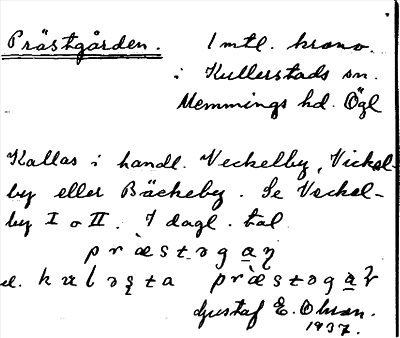 Prästgården. 1 mtl. krono.
i Kullerstads sn.
Memmings hd. Ögl
Kallas i handl. Veckelby, Vickel-
by eller Bäckeby. Se Veckel-
by I o II. I dagl. tal
præstəgaɳ
el. præstəgaɽ
Gustaf E. Olsson.
1937.